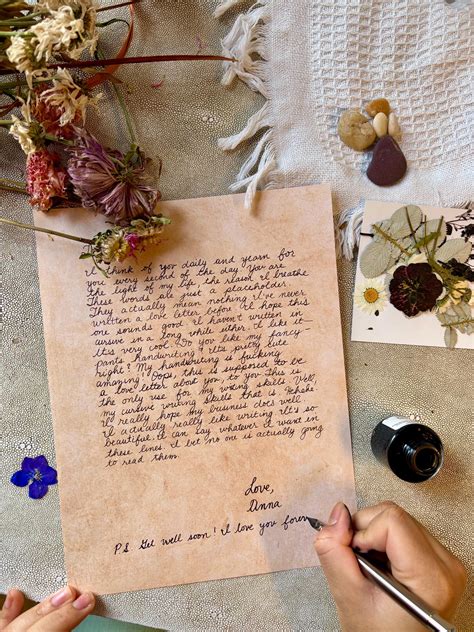 I think of you daily and yearn for
you every second of the day. You are
the light of my life, the reason I breathe
These words are just a placeholder.
They actually mean nothing. I've never
written a love letter before. I hope this
one sounds good. I haven't written in
cursive in a long while either. I like it-
It's very cool. Do you like my fancy-
pants handwriting? It's pretty cute
right? My handwriting is fucking
amazing! Oops this is supposed to be
a love letter about you, to you. This is
the only use for my writing skills. Well,
my cursive writing skills that is. Hehehe
I really hope my business does well.
I actually really like writing. It's so
beautiful. I can say whatever I want in
these lines. I bet no one is actually going
to read them.
Love,
Anna
P.S. Get well soon! I love you forev